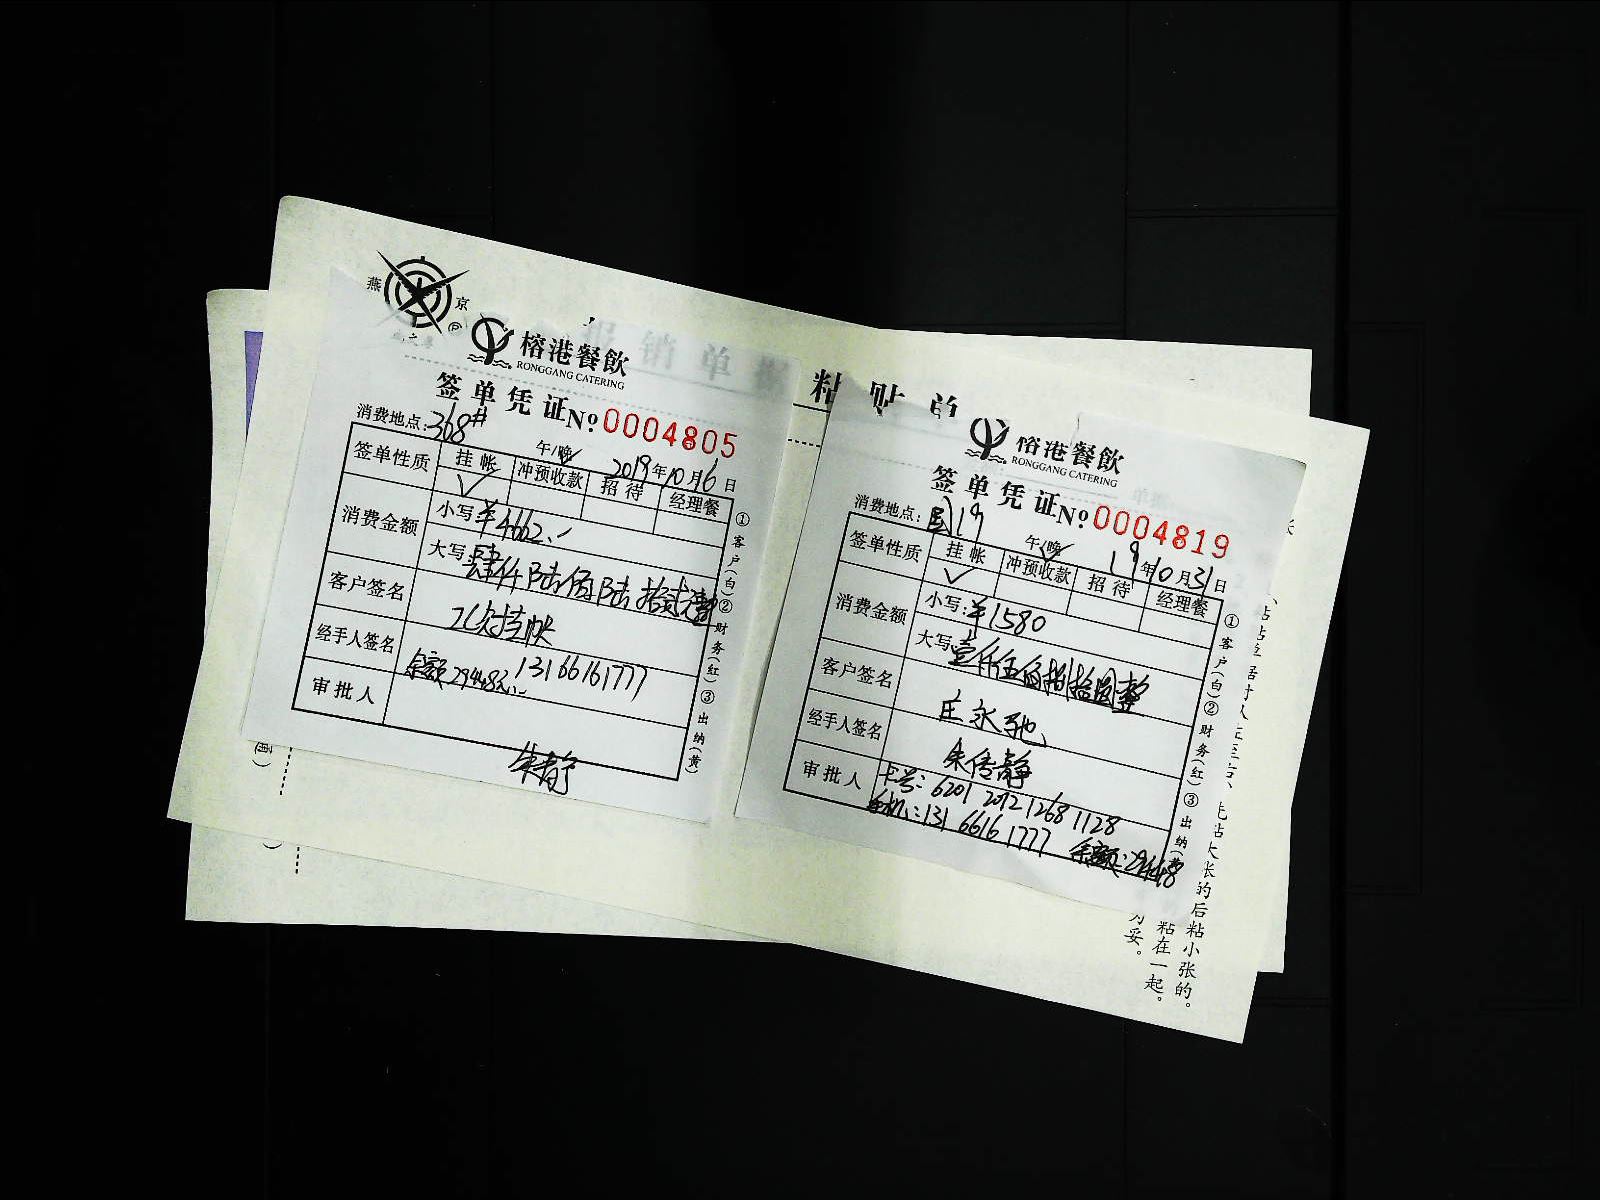 燕京
报销单据
粘贴单
榕港餐飲
RONGGANG CATERING
签单凭证 No 0004805
消费地点:368#
午/晚 2019年10月16日
签单性质 挂帐 冲预收款 招待 经理餐
消费金额 小写 ¥4662.-
大写 肆仟陆佰陆拾贰元整
客户签名
经手人签名 余额29448元.- 13166161777
审批人
朱静
①客户(白)②财务(红)③出纳(黄)
榕港餐飲
RONGGANG CATERING
签单凭证 No 0004819
消费地点:国19
午/晚 19年10月31日
签单性质 挂帐 冲预收款 招待 经理餐
消费金额 小写:¥1580
大写 壹仟伍佰捌拾圆整
客户签名 庄永驰
经手人签名 朱传静
审批人 卡号:6201 2012 1268 1128
手机:131 6616 1777 余额:29448
①客户(白)②财务(红)③出纳(黄)
张的后粘小张的。
粘在一起。
为妥。